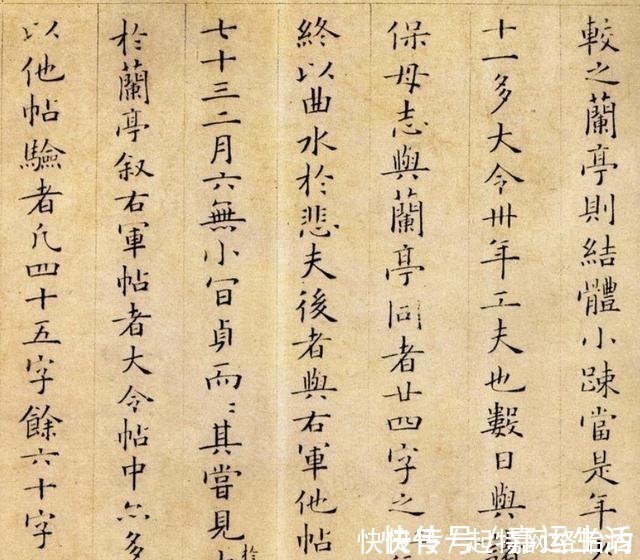 較之蘭亭則結體小疎當是年
十一多大令卅年工夫也數日與
保母志與蘭亭同者廿四字之
終以曲水於悲夫後者與右軍他帖
七十三二月六無小貞而〻其嘗見
於蘭亭叙右軍帖者大令帖中亦多
以他帖驗者凡四十五字餘六十字
快传号